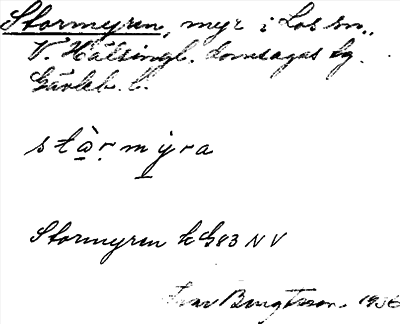 Stormyren, myr i Los sn.,
V. Hälsingl. domsagas tg.
Gävleb. l.
stὰ̱ṛmy̱ra
Stormyren k G83 NV
Ivar Bengtsson 1936